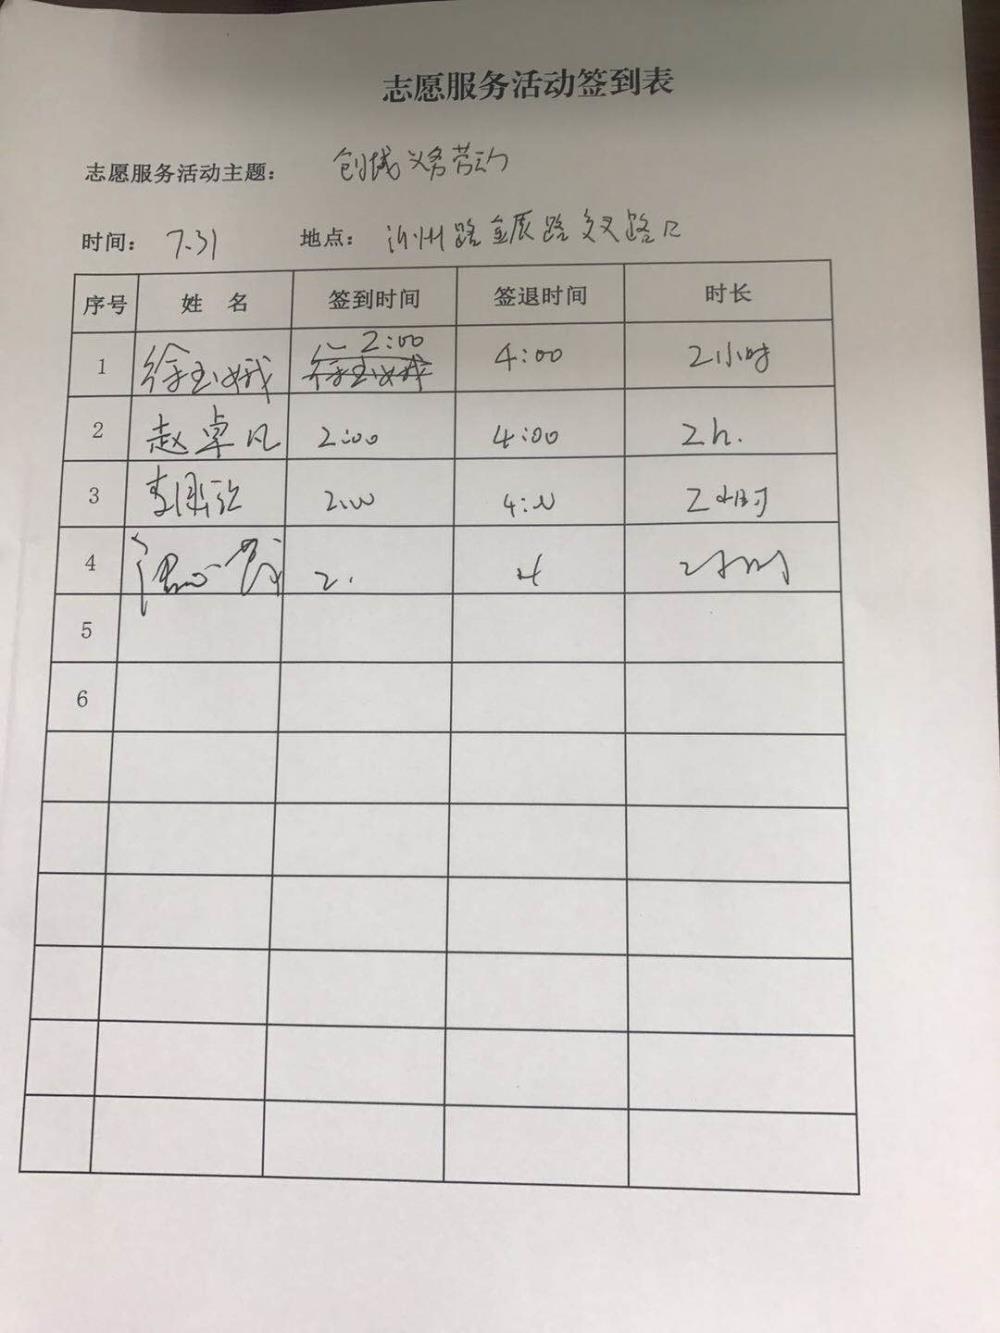 志愿服务活动签到表
志愿服务活动主题： 创城义务劳动
时间： 7.31 地点： 沂州路金辰路交叉路口
序号 姓名 签到时间 签退时间 时长
1 徐玉娥 2:00 4:00 2小时
2 赵卓凡 2:00 4:00 2h.
3 2:00 4:00 2小时
4 2. 4 2小时
5
6